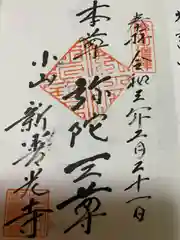 奉拝 令和 月三十一日
本尊 弥陀三尊
小山 新善光寺